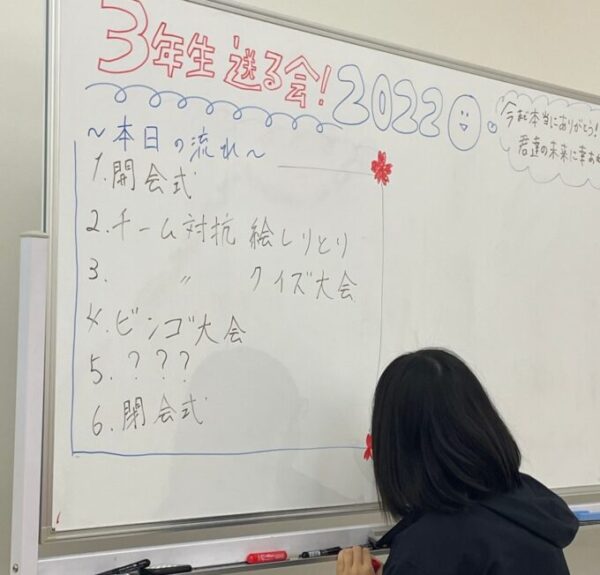 3年生送る会!2022
今まで本当にありがとう!
君達の未来に幸あ
～本日の流れ～
1.開会式
2.チーム対抗 絵しりとり
3. 〃 クイズ大会
4.ビンゴ大会
5.???
6.閉会式